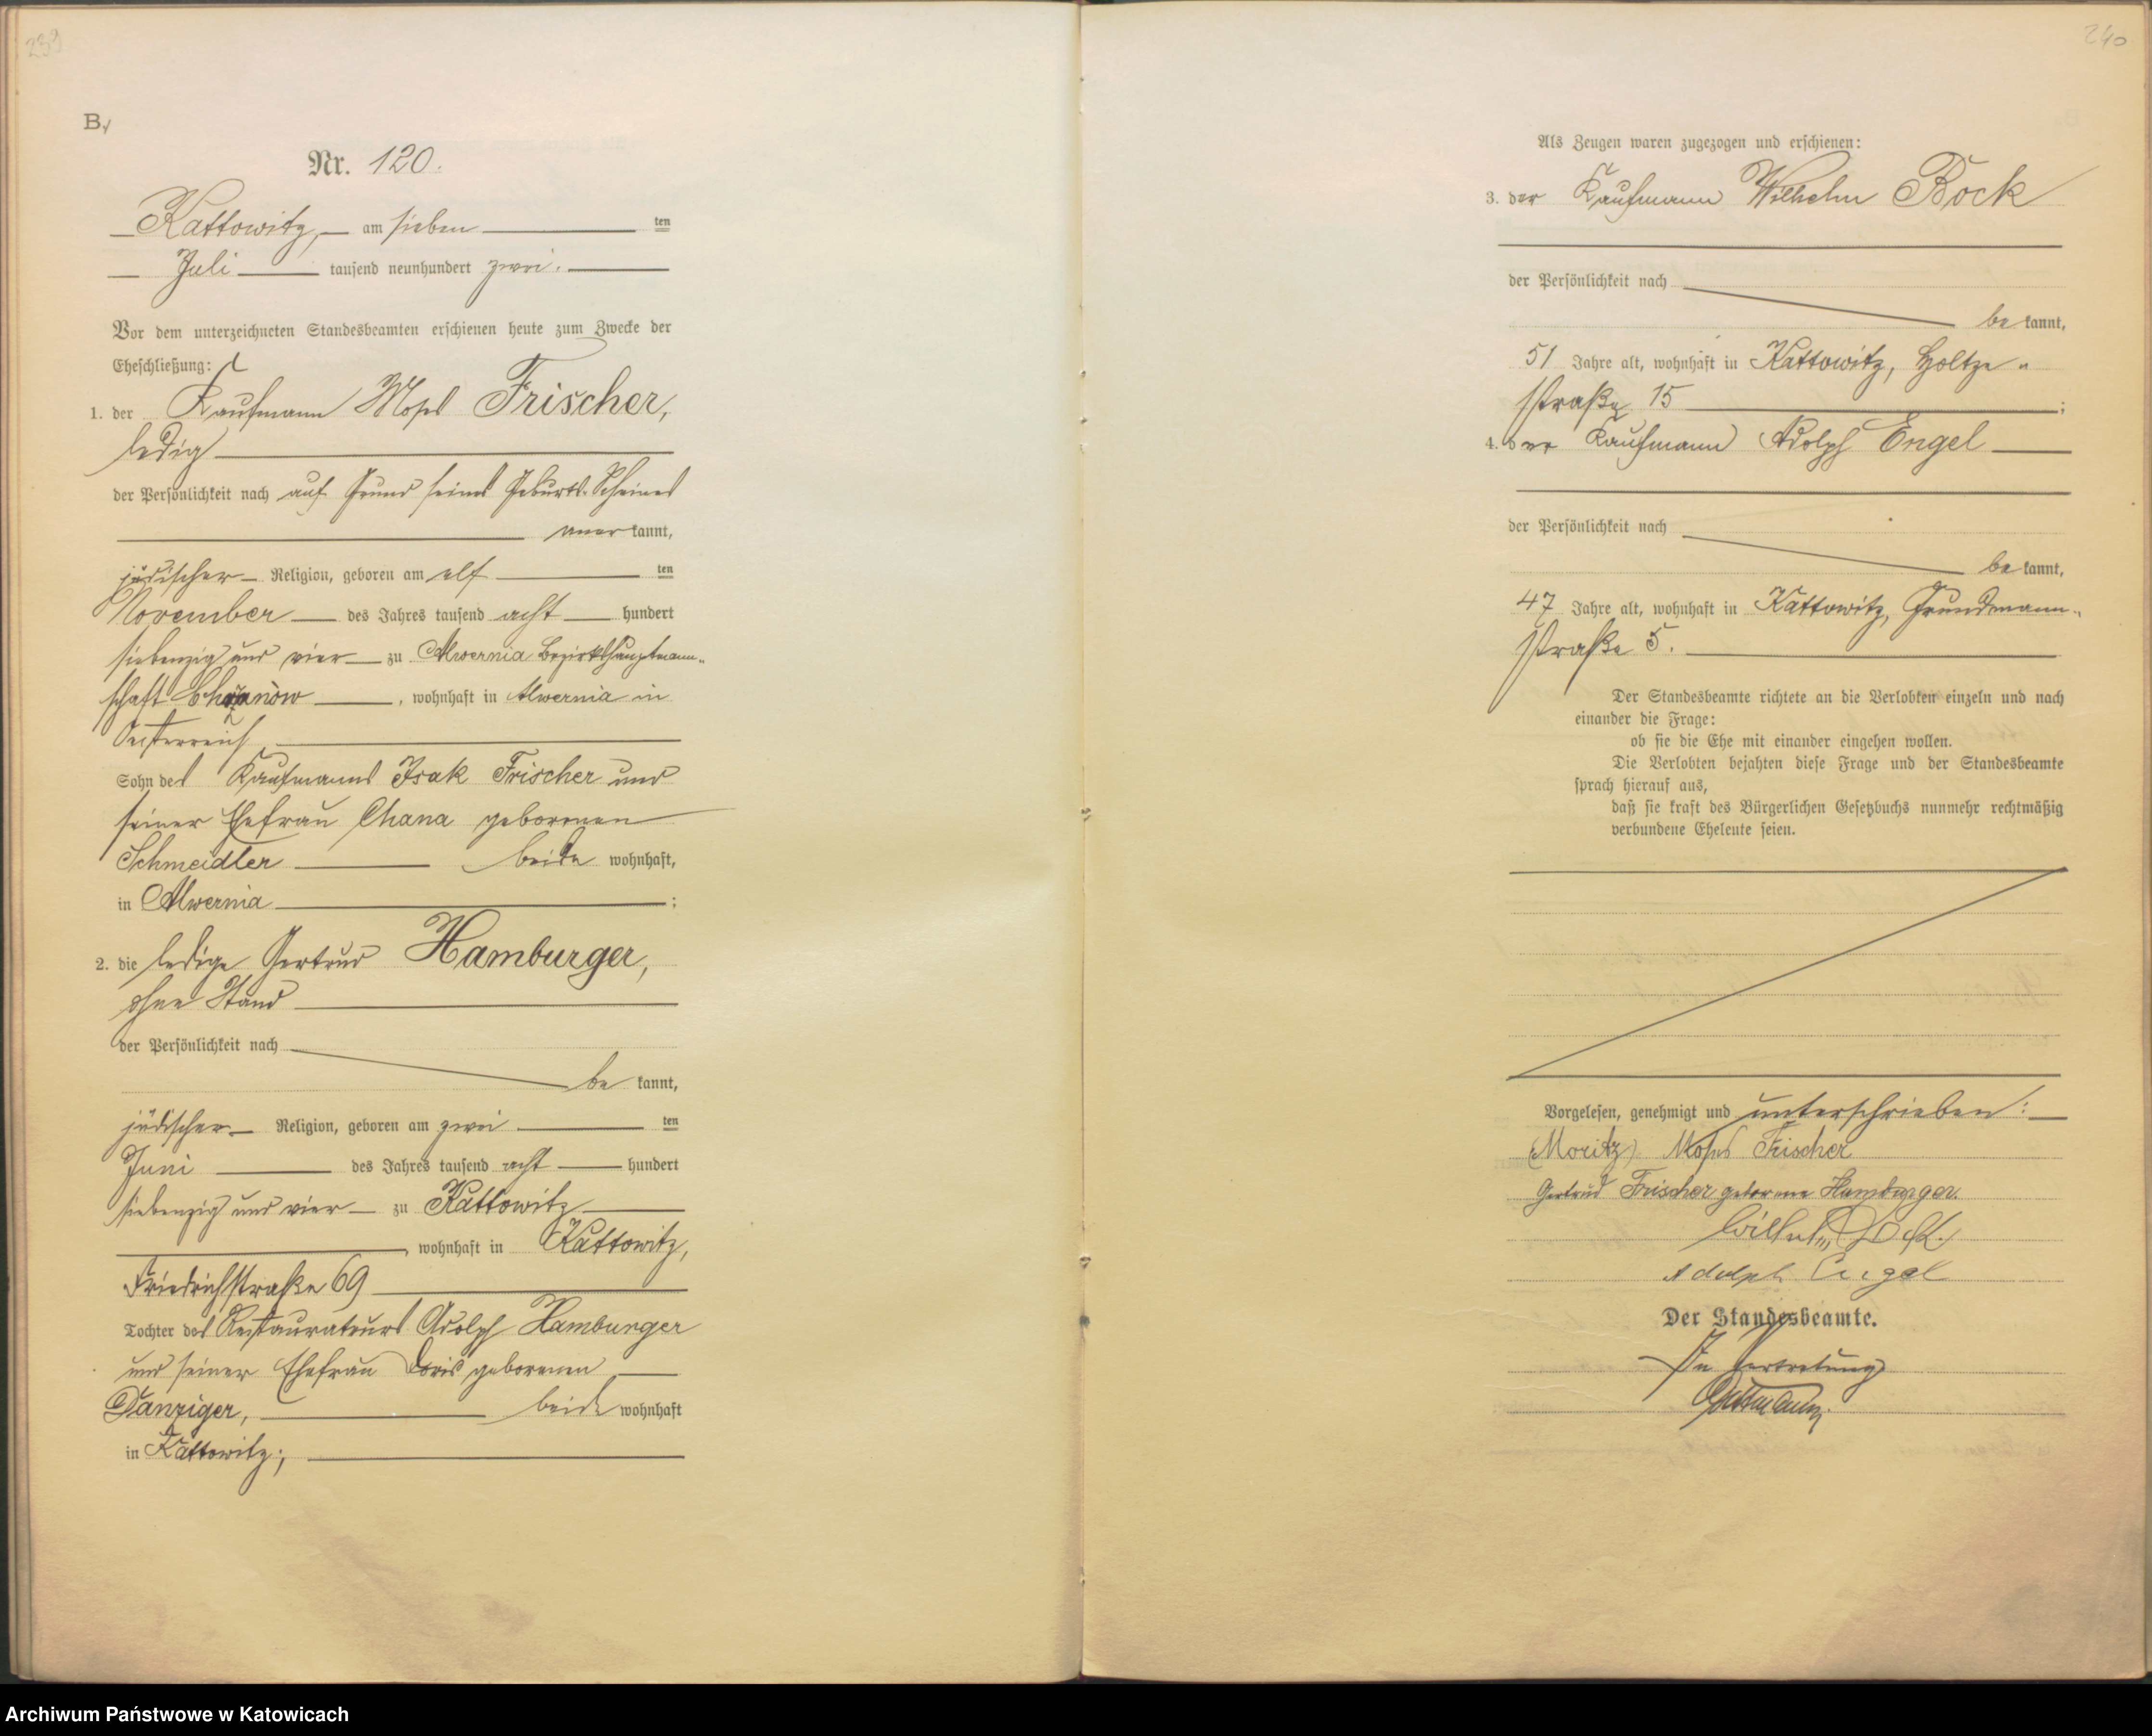 239
B.
Nr. 120.
Kattowitz, am sieben ten
Juli tausend neunhundert zwei.
Vor dem unterzeichneten Standesbeamten erschienen heute zum Zwecke der
Eheschließung:
1. der Kaufmann Moses Frischer,
ledig
der Persönlichkeit nach auf Grund seines Geburts-Scheines
anerkannt,
jüdischer Religion, geboren am elf ten
November des Jahres tausend acht hundert
siebenzig und vier zu Alwernia Bezirkshauptmann-
schaft Chrzanów, wohnhaft in Alwernia in
Oesterreich
Sohn des Kaufmanns Isak Frischer und
seiner Ehefrau Chana geborenen
Schmeidler beide wohnhaft,
in Alwernia ;
2. die ledige Gertrud Hamburger,
ohne Stand
der Persönlichkeit nach
be kannt,
jüdischer Religion, geboren am zwei ten
Juni des Jahres tausend acht hundert
siebenzig und vier zu Kattowitz
, wohnhaft in Kattowitz,
Friedrichstraße 69
Tochter des Restaurateurs Adolph Hamburger
und seiner Ehefrau Doris geborenen
Danziger, beide wohnhaft
in Kattowitz;
240
Als Zeugen waren zugezogen und erschienen:
3. der Kaufmann Wilhelm Bock
der Persönlichkeit nach
be kannt,
51 Jahre alt, wohnhaft in Kattowitz, Holtze-
straße 15 ;
4. der Kaufmann Adolph Engel
der Persönlichkeit nach
be kannt,
47 Jahre alt, wohnhaft in Kattowitz, Grundmann-
straße 5.
Der Standesbeamte richtete an die Verlobten einzeln und nach
einander die Frage:
ob sie die Ehe mit einander eingehen wollen.
Die Verlobten bejahten diese Frage und der Standesbeamte
sprach hierauf aus,
daß sie kraft des Bürgerlichen Gesetzbuchs nunmehr rechtmäßig
verbundene Eheleute seien.
Vorgelesen, genehmigt und unterschrieben:
(Moritz) Moses Frischer
Gertrud Frischer geborene Hamburger.
Wilhelm Bock.
Adolph Engel
Der Standesbeamte.
In Vertretung
Archiwum Państwowe w Katowicach